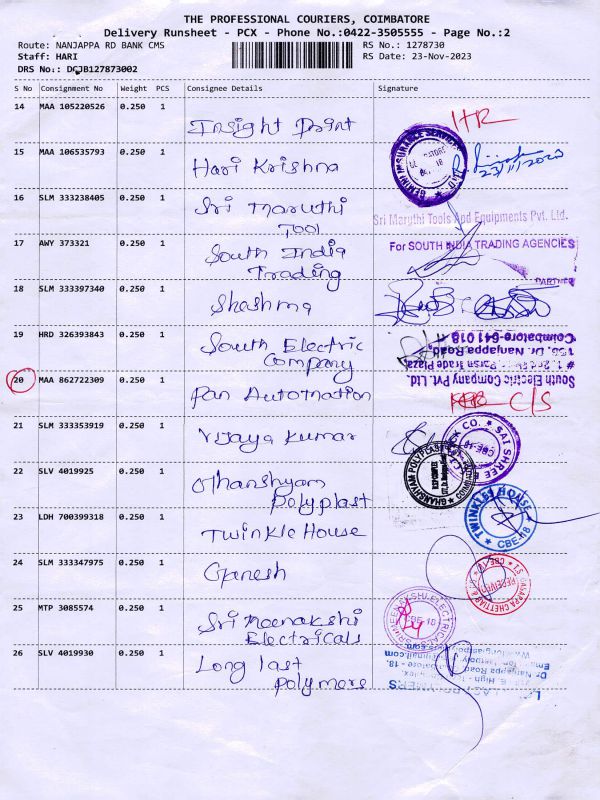 THE PROFESSIONAL COURIERS, COIMBATORE
Delivery Runsheet - PCX - Phone No.:0422-3505555 - Page No.:2
Route: NANJAPPA RD BANK CMS RS No.: 1278730
Staff: HARI RS Date: 23-Nov-2023
DRS No.: DCJB127873002
S No Consignment No Weight PCS Consignee Details Signature
14 MAA 105220526 0.250 1
Insight Point
15 MAA 106535793 0.250 1
Hari Krishna
GEMINI INSURANCE SERVICES
23/11/2023
16 SLM 333238405 0.250 1
Sri Maruthi
Tool
Sri Maruthi Tools And Equipments Pvt. Ltd.
17 AWY 373321 0.250 1
South India
Trading
For SOUTH INDIA TRADING AGENCIES
PARTNER
18 SLM 333397340 0.250 1
Shashma
19 HRD 326393843 0.250 1
South Electric
Company
South Electric Company Pvt. Ltd.
# 1, 2nd Parsn Trade Plaza
156, Dr. Nanjappa Road,
Coimbatore-641 018
20 MAA 862722309 0.250 1
Pan Automation
C/S
21 SLM 333353919 0.250 1
Vijaya Kumar
SAI SHREE
CBE-18
22 SLV 4019925 0.250 1
Ghanshyam
Polyplast
GHANSHYAM POLYPLAST
23 LDH 700399318 0.250 1
Twinkle House
TWINKLE HOUSE
CBE-18
24 SLM 333347975 0.250 1
Ganesh
25 MTP 3085574 0.250 1
Sri Meenakshi
Electricals
CBE-18
26 SLV 4019930 0.250 1
Long last
Polymers
Dr. Nanjappa Road